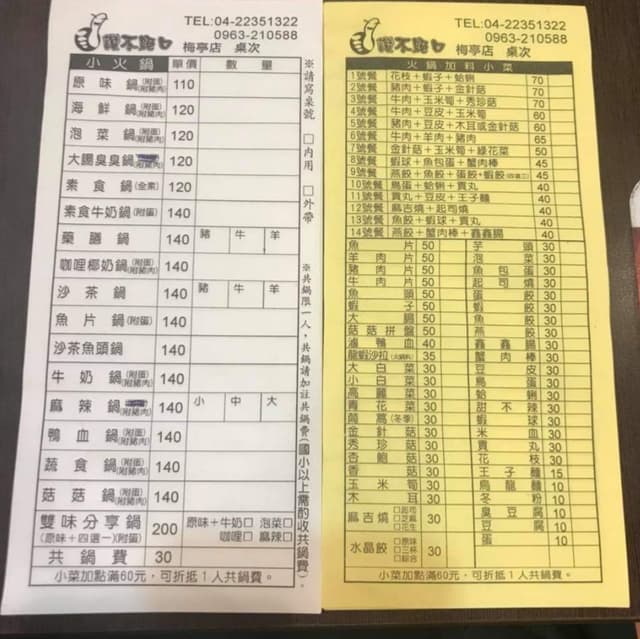 TEL:04-22351322
0963-210588
讚不絕口 梅亭店 桌次
小火鍋 單價 數量
原味鍋(附蛋)(附豬肉) 110
海鮮鍋(附蛋)(附豬肉) 120
泡菜鍋(附蛋)(附豬肉) 120
大腸臭臭鍋 120
素食鍋(全素) 120
素食牛奶鍋(附蛋) 140
藥膳鍋 140 豬 牛 羊
咖哩椰奶鍋(附蛋)(附豬肉) 140
沙茶鍋 140 豬 牛 羊
魚片鍋(附蛋) 140
沙茶魚頭鍋 140
牛奶鍋(附蛋)(附豬肉) 140
麻辣鍋(附豬肉) 140 小 中 大
鴨血鍋(附蛋)(附豬肉) 140
蔬食鍋(附蛋)(附豬肉) 140
菇菇鍋(附蛋)(附豬肉) 140
雙味分享鍋 200 原味+牛奶□ 泡菜□
(原味+四選一)(附蛋) 咖哩□ 麻辣□
共鍋費 30
小菜加點滿60元,可折抵1人共鍋費。
※請寫桌號 □內用 □外帶
※共鍋限一人,共鍋請加註共鍋費(國小以上需酌收共鍋費)。
TEL:04-22351322
0963-210588
讚不絕口 梅亭店 桌次
火鍋加料小菜
1號餐 花枝+蝦子+蛤蜊 70
2號餐 豬肉+蝦子+金針菇 70
3號餐 牛肉+玉米筍+秀珍菇 70
4號餐 牛肉+豆皮+玉米筍 60
5號餐 豬肉+豆皮+木耳或金針菇 60
6號餐 牛肉+羊肉+豬肉 65
7號餐 金針菇+玉米筍+綠花菜 50
8號餐 蝦球+魚包蛋+蟹肉棒 45
9號餐 燕餃+魚餃+蛋餃+蝦餃(四選三) 45
10號餐 鳥蛋+蛤蜊+貢丸 40
11號餐 貢丸+豆皮+王子麵 40
12號餐 麻吉燒+起司燒 40
13號餐 魚餃+蝦球+貢丸 40
14號餐 燕餃+蟹肉棒+鑫鑫腸 40
魚片 50 芋頭 30
羊肉片 50 泡菜 30
豬肉片 50 魚包蛋 30
牛肉片 50 起司燒 30
魚頭 50 蛋餃 30
蝦子 50 蝦餃 30
大腸 50 魚餃 30
菇菇拼盤 50 燕餃 30
滷鴨血 40 鑫鑫腸 30
龍蝦沙拉(火鍋料) 35 蟹肉棒 30
大白菜 30 豆皮 30
小白菜 30 鳥蛋 30
高麗菜 30 蛤蜊 30
青花菜 30 甜不辣 30
茼蒿(冬季) 30 蝦球 30
金針菇 30 米血 30
秀珍菇 30 貢丸 30
杏鮑菇 30 花枝 30
香菇 30 王子麵 15
玉米筍 30 烏龍麵 10
木耳 30 冬粉 10
麻吉燒 □起司 □芝麻 □花生 30 臭豆腐 10
豆腐 10
水晶餃 □原味 □三杯 □綜合 30 蛋 10
小菜加點滿60元,可折抵1人共鍋費。